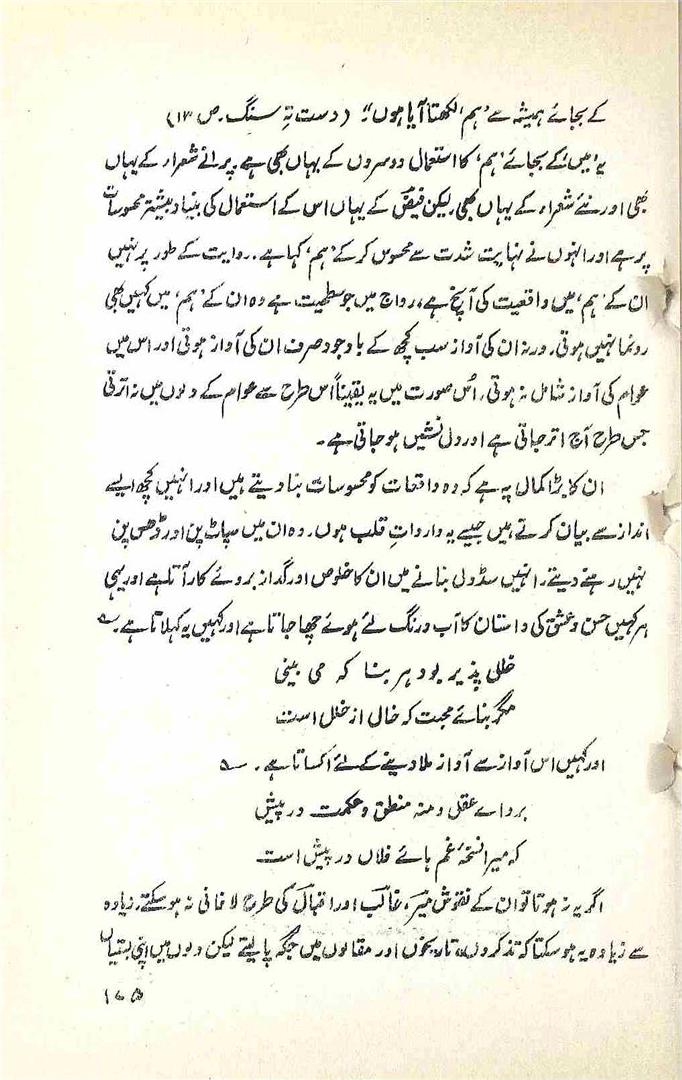 کے بجائے ہمیشہ سے ’ہم‘ لکھتا آیا ہوں"۔ (دست تہِ سنگ۔ ص ۱۳)
یہ ’میں‘ کے بجائے ’ہم‘ کا استعمال دوسروں کے یہاں بھی ہے۔ پرانے شعراء کے یہاں
بھی اور نئے شعراء کے یہاں بھی۔ لیکن فیضؔ کے یہاں اس کے استعمال کی بنیاد بیشتر محسوسات
پر ہے اور انہوں نے نہایت شدت سے محسوس کر کے ’ہم‘ کہا ہے۔ روایت کے طور پر نہیں
ان کے ’ہم‘ میں واقعیت کی آنچ ہے، رواج میں جو سطحیت ہے وہ ان کے ’ہم‘ میں کہیں بھی
رونما نہیں ہوتی۔ ورنہ ان کی آواز سب کچھ کے باوجود صرف ان کی آواز ہوتی اور اس میں
عوام کی آواز شامل نہ ہوتی، اُس صورت میں یہ یقیناً اس طرح سے عوام کے دلوں میں نہ اترتی
جس طرح آج اتر جاتی ہے اور دل نشیں ہو جاتی ہے۔
ان کا بڑا کمال یہ ہے کہ وہ واقعات کو محسوسات بنا دیتے ہیں اور انہیں کچھ ایسے
انداز سے بیان کرتے ہیں جیسے یہ وارداتِ قلب ہوں۔ وہ ان میں سپاٹ پن اور
نہیں رہنے دیتے۔ انہیں سڈول بنانے میں ان کا خلوص اور گداز بروئے کار آتا ہے اور یہی
ہر کہیں حسن و عشق کی داستان کا آب و رنگ لئے ہوئے چھا جاتا ہے اور کہیں یہ کہلاتا ہے۔ ؎
خللی پذیر بود ہر بنا کہ می بینی
مگر بنائے محبت کہ خالی از خلل است
اور کہیں اس آواز سے آواز ملا دینے کے لئے اُکساتا ہے۔ ؎
برو اے عقل و منہ منطق و حکمت در پیش
کہ میرا نسخۂ غم ہائے فلاں در پیش است
اگر یہ نہ ہوتا تو ان کے نقوش میرؔ، غالبؔ اور اقبالؔ کی طرح لافانی نہ ہو سکتے۔ زیادہ
سے زیادہ یہ ہو سکتا کہ تذکروں، تاریخوں اور مقالوں میں جگہ پا لیتے لیکن دلوں میں اپنی بستیاں